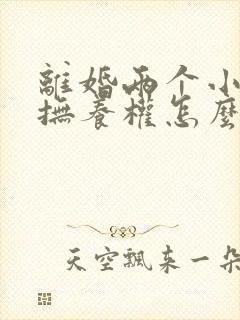 離婚兩个小
撫養權怎麼
天空飄来一朵